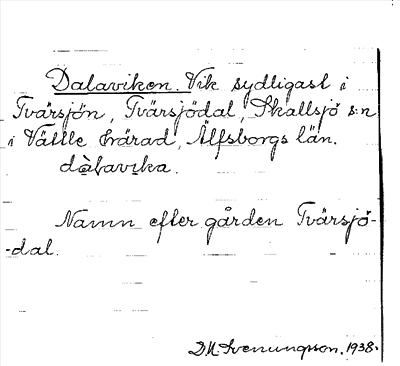 Dalaviken. Vik sydligast i
Tvärsjön, Tvärsjödal, Skallsjö s:n
i Vättle härad, Älfsborgs län.
dàlavika.
Namn efter gården Tvärsjö-
-dal.
D.M. Svenungsson. 1938.